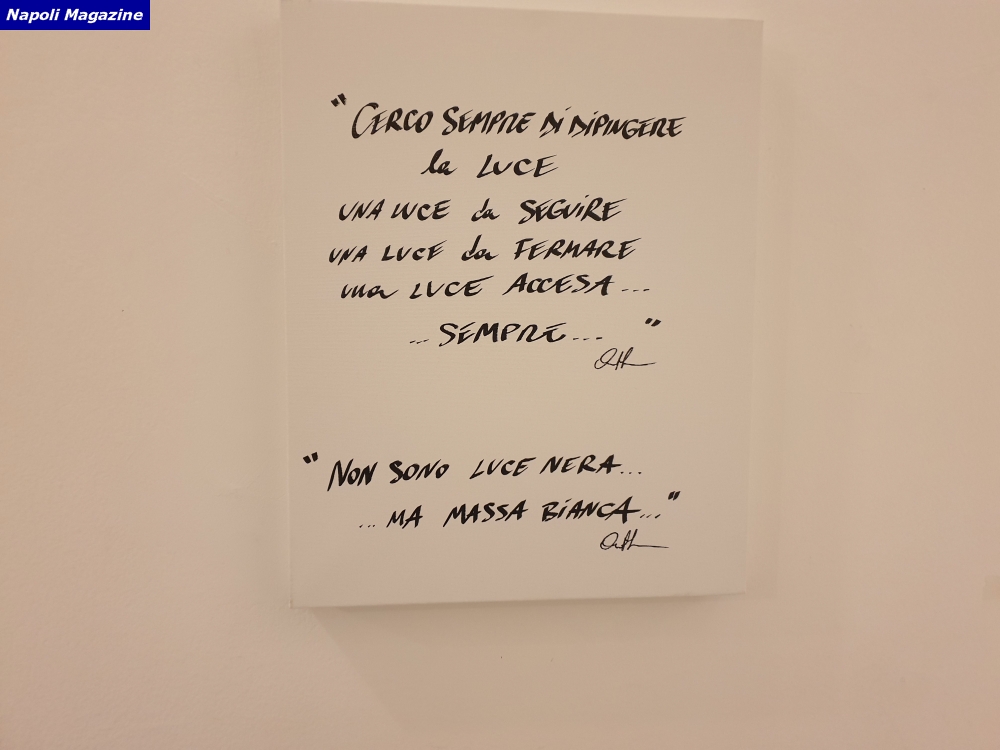 Napoli Magazine
"CERCO SEMPRE DI DIPINGERE
la LUCE
UNA LUCE da SEGUIRE
UNA LUCE da FERMARE
una LUCE ACCESA...
... SEMPRE... "
"NON SONO LUCE NERA...
... MA MASSA BIANCA..."